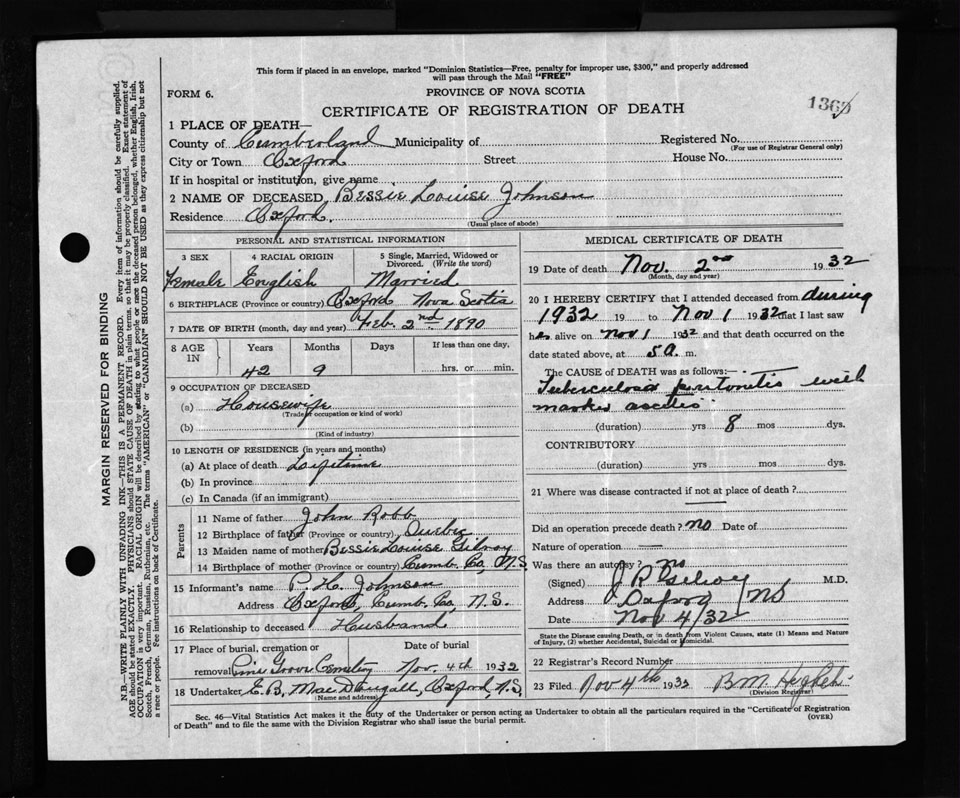 This form if placed in an envelope, marked "Dominion Statistics—Free, penalty for improper use, $300," and properly addressed
will pass through the Mail "FREE"
FORM 6.
PROVINCE OF NOVA SCOTIA
CERTIFICATE OF REGISTRATION OF DEATH
1 PLACE OF DEATH—
County of Cumberland Municipality of
Registered No.
(For use of Registrar General only)
City or Town Oxford Street House No.
If in hospital or institution, give name
2 NAME OF DECEASED Bessie Louise Johnson
Residence Oxford.
(Usual place of abode)
PERSONAL AND STATISTICAL INFORMATION
3 SEX 4 RACIAL ORIGIN 5 Single, Married, Widowed or
Divorced. (Write the word)
Female English Married
6 BIRTHPLACE (Province or country) Oxford Nova Scotia
7 DATE OF BIRTH (month, day and year) Feb. 2nd 1890
8 AGE IN Years Months Days If less than one day,
42 9 hrs. or min.
9 OCCUPATION OF DECEASED
(a) Housewife
(Trade or occupation or kind of work)
(b)
(Kind of industry)
10 LENGTH OF RESIDENCE (in years and months)
(a) At place of death Lifetime
(b) In province
(c) In Canada (if an immigrant)
Parents
11 Name of father John Robb
12 Birthplace of father (Province or country) Quebec
13 Maiden name of mother Bessie Louise Gilroy
14 Birthplace of mother (Province or country) Cumb. Co, N.S.
15 Informant's name P. H. Johnson
Address Oxford, Cumb. Co, N.S.
16 Relationship to deceased Husband
17 Place of burial, cremation or Date of burial
removal Pine Grove Cemetery Nov. 4th 1932
18 Undertaker E. B. MacDougall, Oxford N.S.
(Name and address)
MEDICAL CERTIFICATE OF DEATH
19 Date of death Nov. 2nd 1932
(Month, day and year)
20 I HEREBY CERTIFY that I attended deceased from during
1932 19 to Nov 1 1932 that I last saw
her alive on Nov 1 1932 and that death occurred on the
date stated above, at 5 a. m.
The CAUSE OF DEATH was as follows:—
Tuberculosis peritonitis with
marked ascites
(duration) yrs 8 mos dys.
CONTRIBUTORY
(duration) yrs. mos. dys.
21 Where was disease contracted if not at place of death?
Did an operation precede death? no Date of
Nature of operation —
Was there an autopsy? no
(Signed) J R Gilroy M.D.
Address Oxford NS
Date Nov 4/32
State the Disease causing Death, or in death from Violent Causes, state (1) Means and Nature
of Injury, (2) whether Accidental, Suicidal or Homicidal.
22 Registrar's Record Number
23 Filed Nov 4th 1932
(Division Registrar)
Sec. 46—Vital Statistics Act makes it the duty of the Undertaker or person acting as Undertaker to obtain all the particulars required in the "Certificate of Registration
of Death" and to file the same with the Division Registrar who shall issue the burial permit.
(OVER)
MARGIN RESERVED FOR BINDING
N.B.—WRITE PLAINLY WITH UNFADING INK—THIS IS A PERMANENT RECORD. Every item of information should be carefully supplied.
AGE should be stated EXACTLY. PHYSICIANS should STATE CAUSE OF DEATH in plain terms, so that it may be properly classified. Exact statement of
OCCUPATION is very important. RACIAL ORIGIN will be described by stating to what people or race the deceased person belonged, whether English, Irish,
Scotch, French, German, Russian, Ruthenian, etc. The terms "AMERICAN" or "CANADIAN" SHOULD NOT BE USED as they express citizenship but not
a race or people. Fee instructions on back of Certificate.